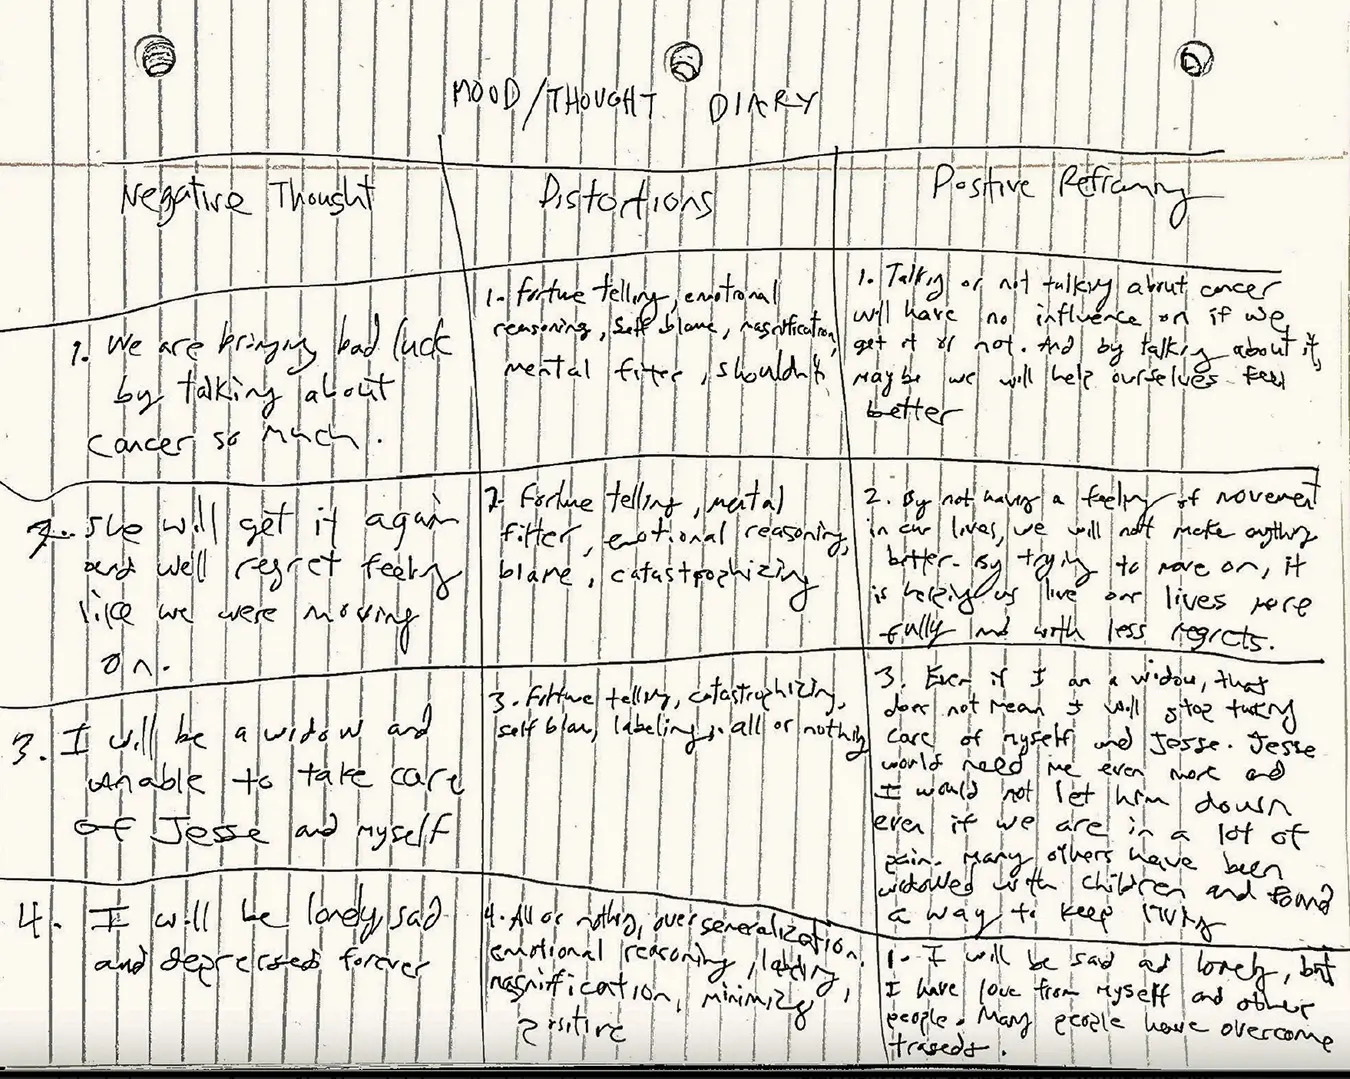 MOOD/THOUGHT DIARY
Negative Thought
Distortions
Positive Reframing
1. We are bringing bad luck
by talking about
cancer so much.
1. Fortune telling, emotional
reasoning, self blame, magnification,
mental filter, shouldn't
1. Talking or not talking about cancer
will have no influence on if we
get it or not. And by talking about it,
maybe we will help ourselves feel
better
2. She will get it again
and we'll regret feeling
like we were moving
on.
2. Fortune telling, mental
filter, emotional reasoning,
blame, catastrophizing
2. By not having a feeling of movement
in our lives, we will not make anything
better. By trying to move on, it
is helping us live our lives more
fully and with less regrets.
3. I will be a widow and
unable to take care
of Jesse and myself
3. Fortune telling, catastrophizing,
self blame, labeling, all or nothing
3. Even if I am a widow, that
does not mean I will stop taking
care of myself and Jesse. Jesse
would need me even more and
I would not let him down
even if we are in a lot of
pain. Many others have been
widowed with children and found
a way to keep living
4. I will be lonely, sad
and depressed forever
4. All or nothing, overgeneralization,
emotional reasoning, labeling,
magnification, minimizing
positive
1. I will be sad and lonely, but
I have love from myself and other
people. Many people have overcome